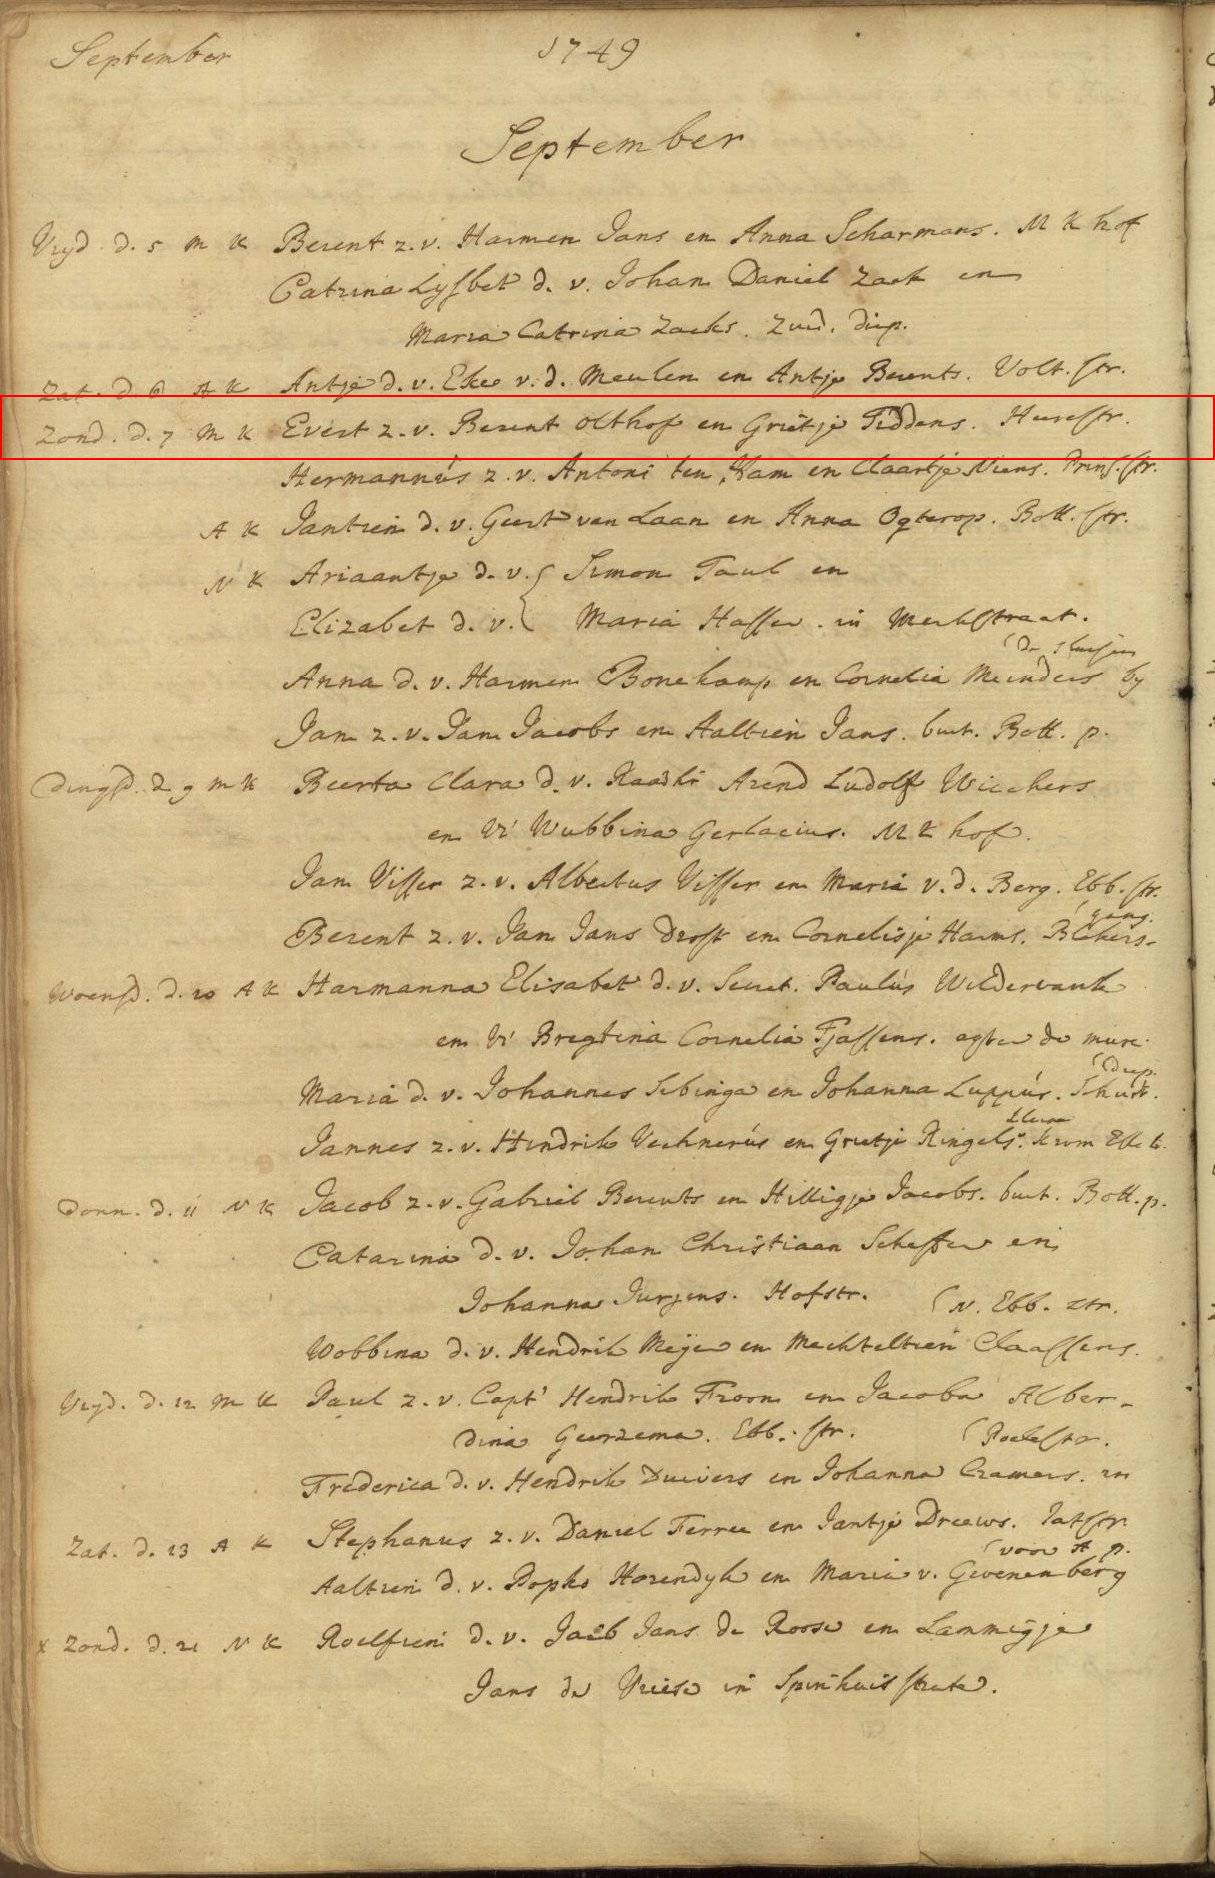 September 1749
September
Vryd d. 5 M K Berent z. v. Harmen Jans en Anna Scharmans. M K hof
Catrina Lysbet d. v. Johan Daniel Zack en
Maria Catrina Zacks. Zuid. diep.
Zat. d. 6 A K Antje d. v. Eke v. d. Meulen en Antje Berents. Volt. str.
Zond. d. 7 M K Evert z. v. Berent Olthof en Grietje Tiddens. Heerestr.
Hermannus z. v. Antoni ten Kam en Claartje Niens. Prins. str.
A K Jantien d. v. Geert van Laan en Anna Ogterop. Bott. str.
N K Ariaantje d. v. { Simon Paul en
Elizabet d. v. { Maria Hasser. in Merkstraat.
(de sluisen
Anna d. v. Harmen Bonekamp en Cornelia Meinders by
Jan z. v. Jan Jacobs en Aaltien Jans. buit. Bott. p.
Dingsd. d 9 M K Beerta Clara d. v. Raadhr Arend Ludolf Wichers
en Vr Wubbina Gerlacius. M K hof.
Jan Visser z. v. Albertus Visser en Maria v. d. Berg. Ebb. str.
(gang.
Berent z. v. Jan Jans Drost en Cornelisje Harms. Blekers-
Woensd. d. 10 A K Harmanna Elisabet d. v. Secret. Paulus Wildervank
en Vr Bregtina Cornelia Tjassens. agter de mure.
(diep.
Maria d. v. Johannes Sibinga en Johanna Luppus. Schuit.
kleine
Jannes z. v. Hendrik Vechnerus en Grietje Ringels. krom Elle b.
Donn. d. 11 N K Jacob z. v. Gabriel Berents en Hilligje Jacobs. buit. Bott. p.
Catarina d. v. Johan Christiaan Scheffer en
Johanna Jurjens. Hofstr. (N. Ebb. str.
Wobbina d. v. Hendrik Meijer en Mechteltien Claassens.
Vryd. d. 12 M K Paul z. v. Capt Hendrik Froon en Jacoba Alber-
dina Geerzema. Ebb. str. (Poelestr.
Frederica d. v. Hendrik Duivers en Johanna Cramers. in
Zat. d. 13 A K Stephanus z. v. Daniel Ferree en Jantje Dreews. Tatstr.
(voor A p.
Aaltien d. v. Popko Horendyk en Maria v. Groenenberg
x Zond. d. 21 N K Roelfien d. v. Jacob Jans de Roose en Lammigje
Jans de Vriese in Spinhuis strate.